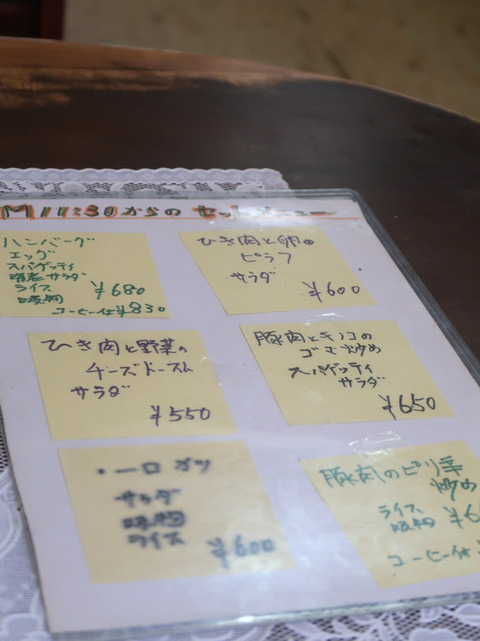 M 11:30からの セットメニュー
ハンバーグ
エッグ
スパゲッティ
サラダ
ライス ¥680
コーヒー付¥830
ひき肉と卵の
ピラフ
サラダ
¥600
ひき肉と野菜の
チーズトースト
サラダ
¥550
豚肉とキノコの
ゴマ炒め
スパゲッティ
サラダ
¥650
・一口カツ
サラダ
ライス
¥600
豚肉のピリ辛
炒め
ライス
コーヒー付